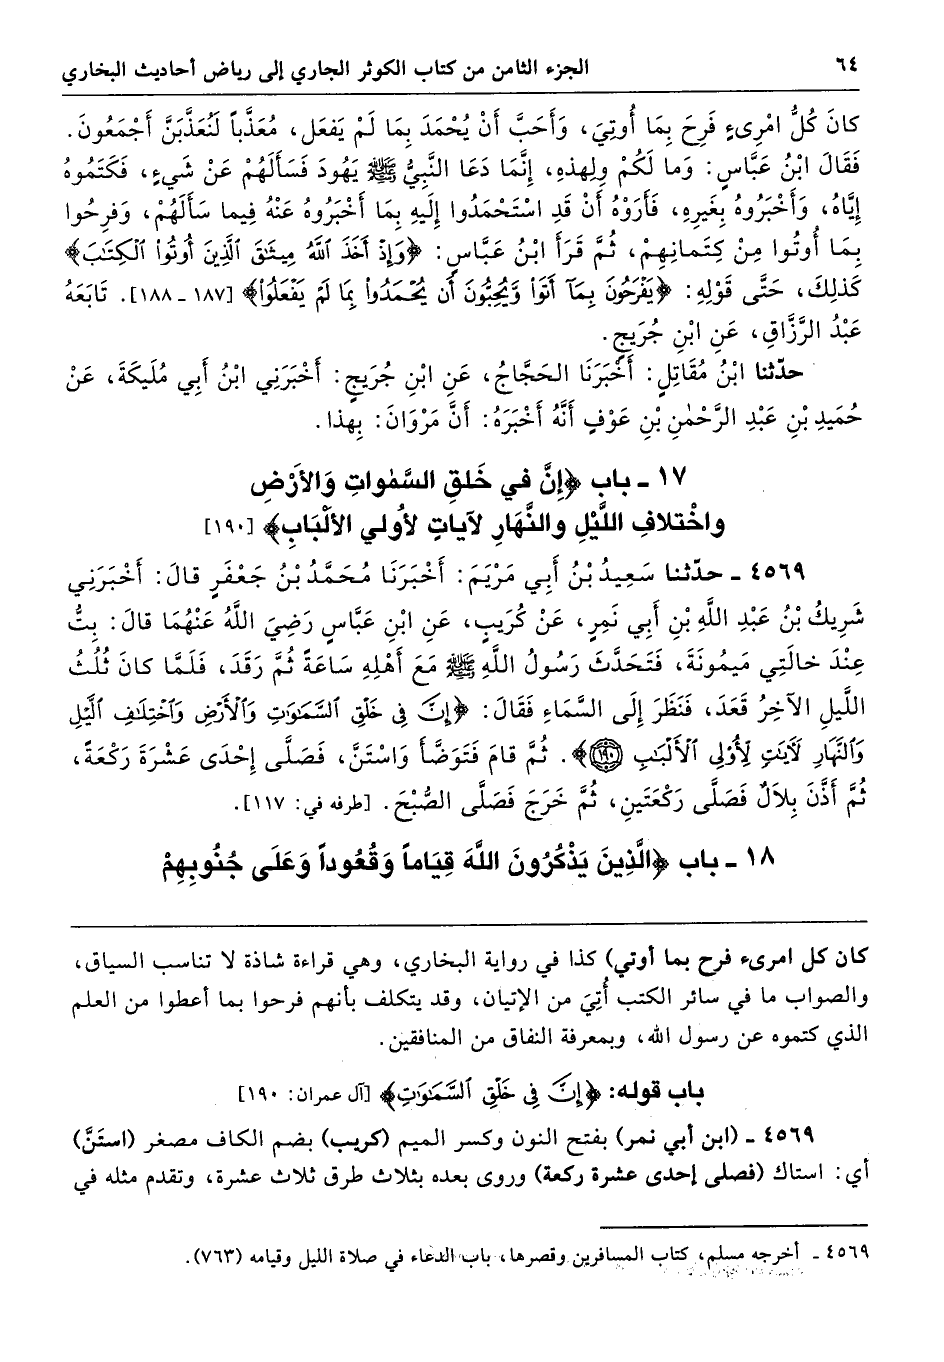 ٦٤ الجزء الثامن من كتاب الكوثر الجاري إلى رياض أحاديث البخاري
كانَ كُلُّ امْرِىءٍ فَرِحَ بِمَا أُوتِيَ، وَأَحَبَّ أَنْ يُحْمَدَ بِمَا لَمْ يَفعَل، مُعَذَّباً لَنُعَذَّبَنَّ أَجْمَعُونَ.
فَقَالَ ابْنُ عَبَّاسٍ: وَما لَكُمْ وَلِهذِهِ، إِنَّمَا دَعَا النَّبِيُّ ﷺ يَهُودَ فَسَأَلَهُمْ عَنْ شَيءٍ، فَكَتَمُوهُ
إِيَّاهُ، وَأَخْبَرُوهُ بِغَيرِهِ، فَأَرَوْهُ أَنْ قَدِ اسْتَحْمَدُوا إِلَيهِ بِمَا أَخْبَرُوهُ عَنْهُ فِيما سَأَلَهُمْ، وَفَرِحُوا
بِمَا أُوتُوا مِنْ كِتمَانِهِمْ، ثُمَّ قَرَأَ ابْنُ عَبَّاسٍ: ﴿وَإِذْ أَخَذَ ٱللَّهُ مِيثَٰقَ ٱلَّذِينَ أُوتُوا۟ ٱلْكِتَٰبَ﴾
كَذلِكَ، حَتَّى قَوْلِهِ: ﴿يَفْرَحُونَ بِمَآ أَتَوا۟ وَّيُحِبُّونَ أَن يُحْمَدُوا۟ بِمَا لَمْ يَفْعَلُوا۟﴾ [١٨٧ ـ ١٨٨]. تَابَعَهُ
عَبْدُ الرَّزَّاقِ، عَنِ ابْنِ جُرَيجٍ.
حدّثنا ابْنُ مُقَاتِلٍ: أَخْبَرَنَا الحَجَّاجُ، عَنِ ابْنِ جُرَيجٍ: أَخْبَرَنِي ابْنُ أَبِي مُلَيكَةَ، عَنْ
حُمَيدِ بْنِ عَبْدِ الرَّحْمٰنِ بْنِ عَوْفٍ أَنَّهُ أَخْبَرَهُ: أَنَّ مَرْوَانَ: بِهذا.
١٧ ـ باب ﴿إِنَّ في خَلقِ السَّمٰواتِ وَالأَرْضِ
واخْتلافِ اللَّيْلِ والنَّهَارِ لآياتٍ لأُولي الألْبَابِ﴾ [١٩٠]
٤٥٦٩ ـ حدّثنا سَعِيدُ بْنُ أَبِي مَرْيَمَ: أَخْبَرَنَا مُحَمَّدُ بْنُ جَعْفَرٍ قالَ: أَخْبَرَنِي
شَرِيكُ بْنُ عَبْدِ اللَّهِ بْنِ أَبِي نَمِرٍ، عَنْ كُرَيبٍ، عَنِ ابْنِ عَبَّاسٍ رَضِيَ اللَّهُ عَنْهُمَا قالَ: بِتُّ
عِنْدَ خالَتِي مَيمُونَةَ، فَتَحَدَّثَ رَسُولُ اللَّهِ ﷺ مَعَ أَهْلِهِ سَاعَةً ثُمَّ رَقَدَ، فَلَمَّا كانَ ثُلُثُ
اللَّيلِ الآخِرُ قَعَدَ، فَنَظَرَ إِلَى السَّمَاءِ فَقَالَ: ﴿إِنَّ فِى خَلْقِ ٱلسَّمَٰوَٰتِ وَٱلْأَرْضِ وَٱخْتِلَٰفِ ٱلَّيْلِ
وَٱلنَّهَارِ لَءَايَٰتٍ لِّأُو۟لِى ٱلْأَلْبَٰبِ ۝١٩٠﴾. ثُمَّ قامَ فَتَوَضَّأَ وَاسْتَنَّ، فَصَلَّى إِحْدَى عَشْرَةَ رَكْعَةً،
ثُمَّ أَذَّنَ بِلاَلٌ فَصَلَّى رَكْعَتَينِ، ثُمَّ خَرَجَ فَصَلَّى الصُّبْحَ. [طرفه في: ١١٧].
١٨ ـ باب ﴿الَّذِينَ يَذْكُرُونَ اللَّهَ قِيَاماً وَقُعُوداً وَعَلَى جُنُوبِهِمْ
كان كل امرىء فرح بما أوتي) كذا في رواية البخاري، وهي قراءة شاذة لا تناسب السياق،
والصواب ما في سائر الكتب أُتِيَ من الإتيان، وقد يتكلف بأنهم فرحوا بما أعطوا من العلم
الذي كتموه عن رسول الله، وبمعرفة النفاق من المنافقين.
باب قوله: ﴿إِنَّ فِى خَلْقِ ٱلسَّمَٰوَٰتِ﴾ [آل عمران: ١٩٠]
٤٥٦٩ ـ (ابن أبي نمر) بفتح النون وكسر الميم (كريب) بضم الكاف مصغر (استَنَّ)
أي: استاك (فصلى إحدى عشرة ركعة) وروى بعده بثلاث طرق ثلاث عشرة، وتقدم مثله في
٤٥٦٩ ـ أخرجه مسلم، كتاب المسافرين وقصرها، باب الدعاء في صلاة الليل وقيامه (٧٦٣).